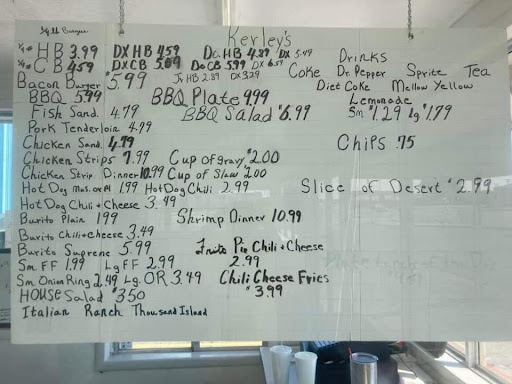 Kerley's
1/4# HB 3.99 DX HB 4.59 Do. HB 4.89 DX 5.49
1/4# CB 4.59 DX CB 5.09 Do CB 5.99 DX 6.59
Jr HB 2.89 DX 3.29
Bacon Burger 5.99
BBQ 5.99 BBQ Plate 9.99
Fish Sand. 4.79 BBQ Salad $6.99
Pork Tenderloin 4.79
Chicken Sand. 4.79
Chicken Strips 7.99 Cup of gravy $2.00
Chicken Strip Dinner 10.99 Cup of Slaw $2.00
Hot Dog Mus. or Pl 1.99 Hot Dog Chili 2.99
Hot Dog Chili + Cheese 3.49
Burito Plain 1.99 Shrimp Dinner 10.99
Burito Chili + cheese 3.49
Burito Supreme 5.99 Frito Pie Chili + Cheese
2.99
Sm. FF 1.99 Lg FF 2.99
Sm. Onion Ring 2.49 Lg. OR 3.49 Chili Cheese Fries
$3.99
House Salad $3.50
Italian Ranch Thousand Island
Drinks
Coke Dr. Pepper Sprite Tea
Diet Coke Mellow Yellow
Lemonade
Sm $1.29 Lg $1.79
Chips .75
Slice of Desert $2.99